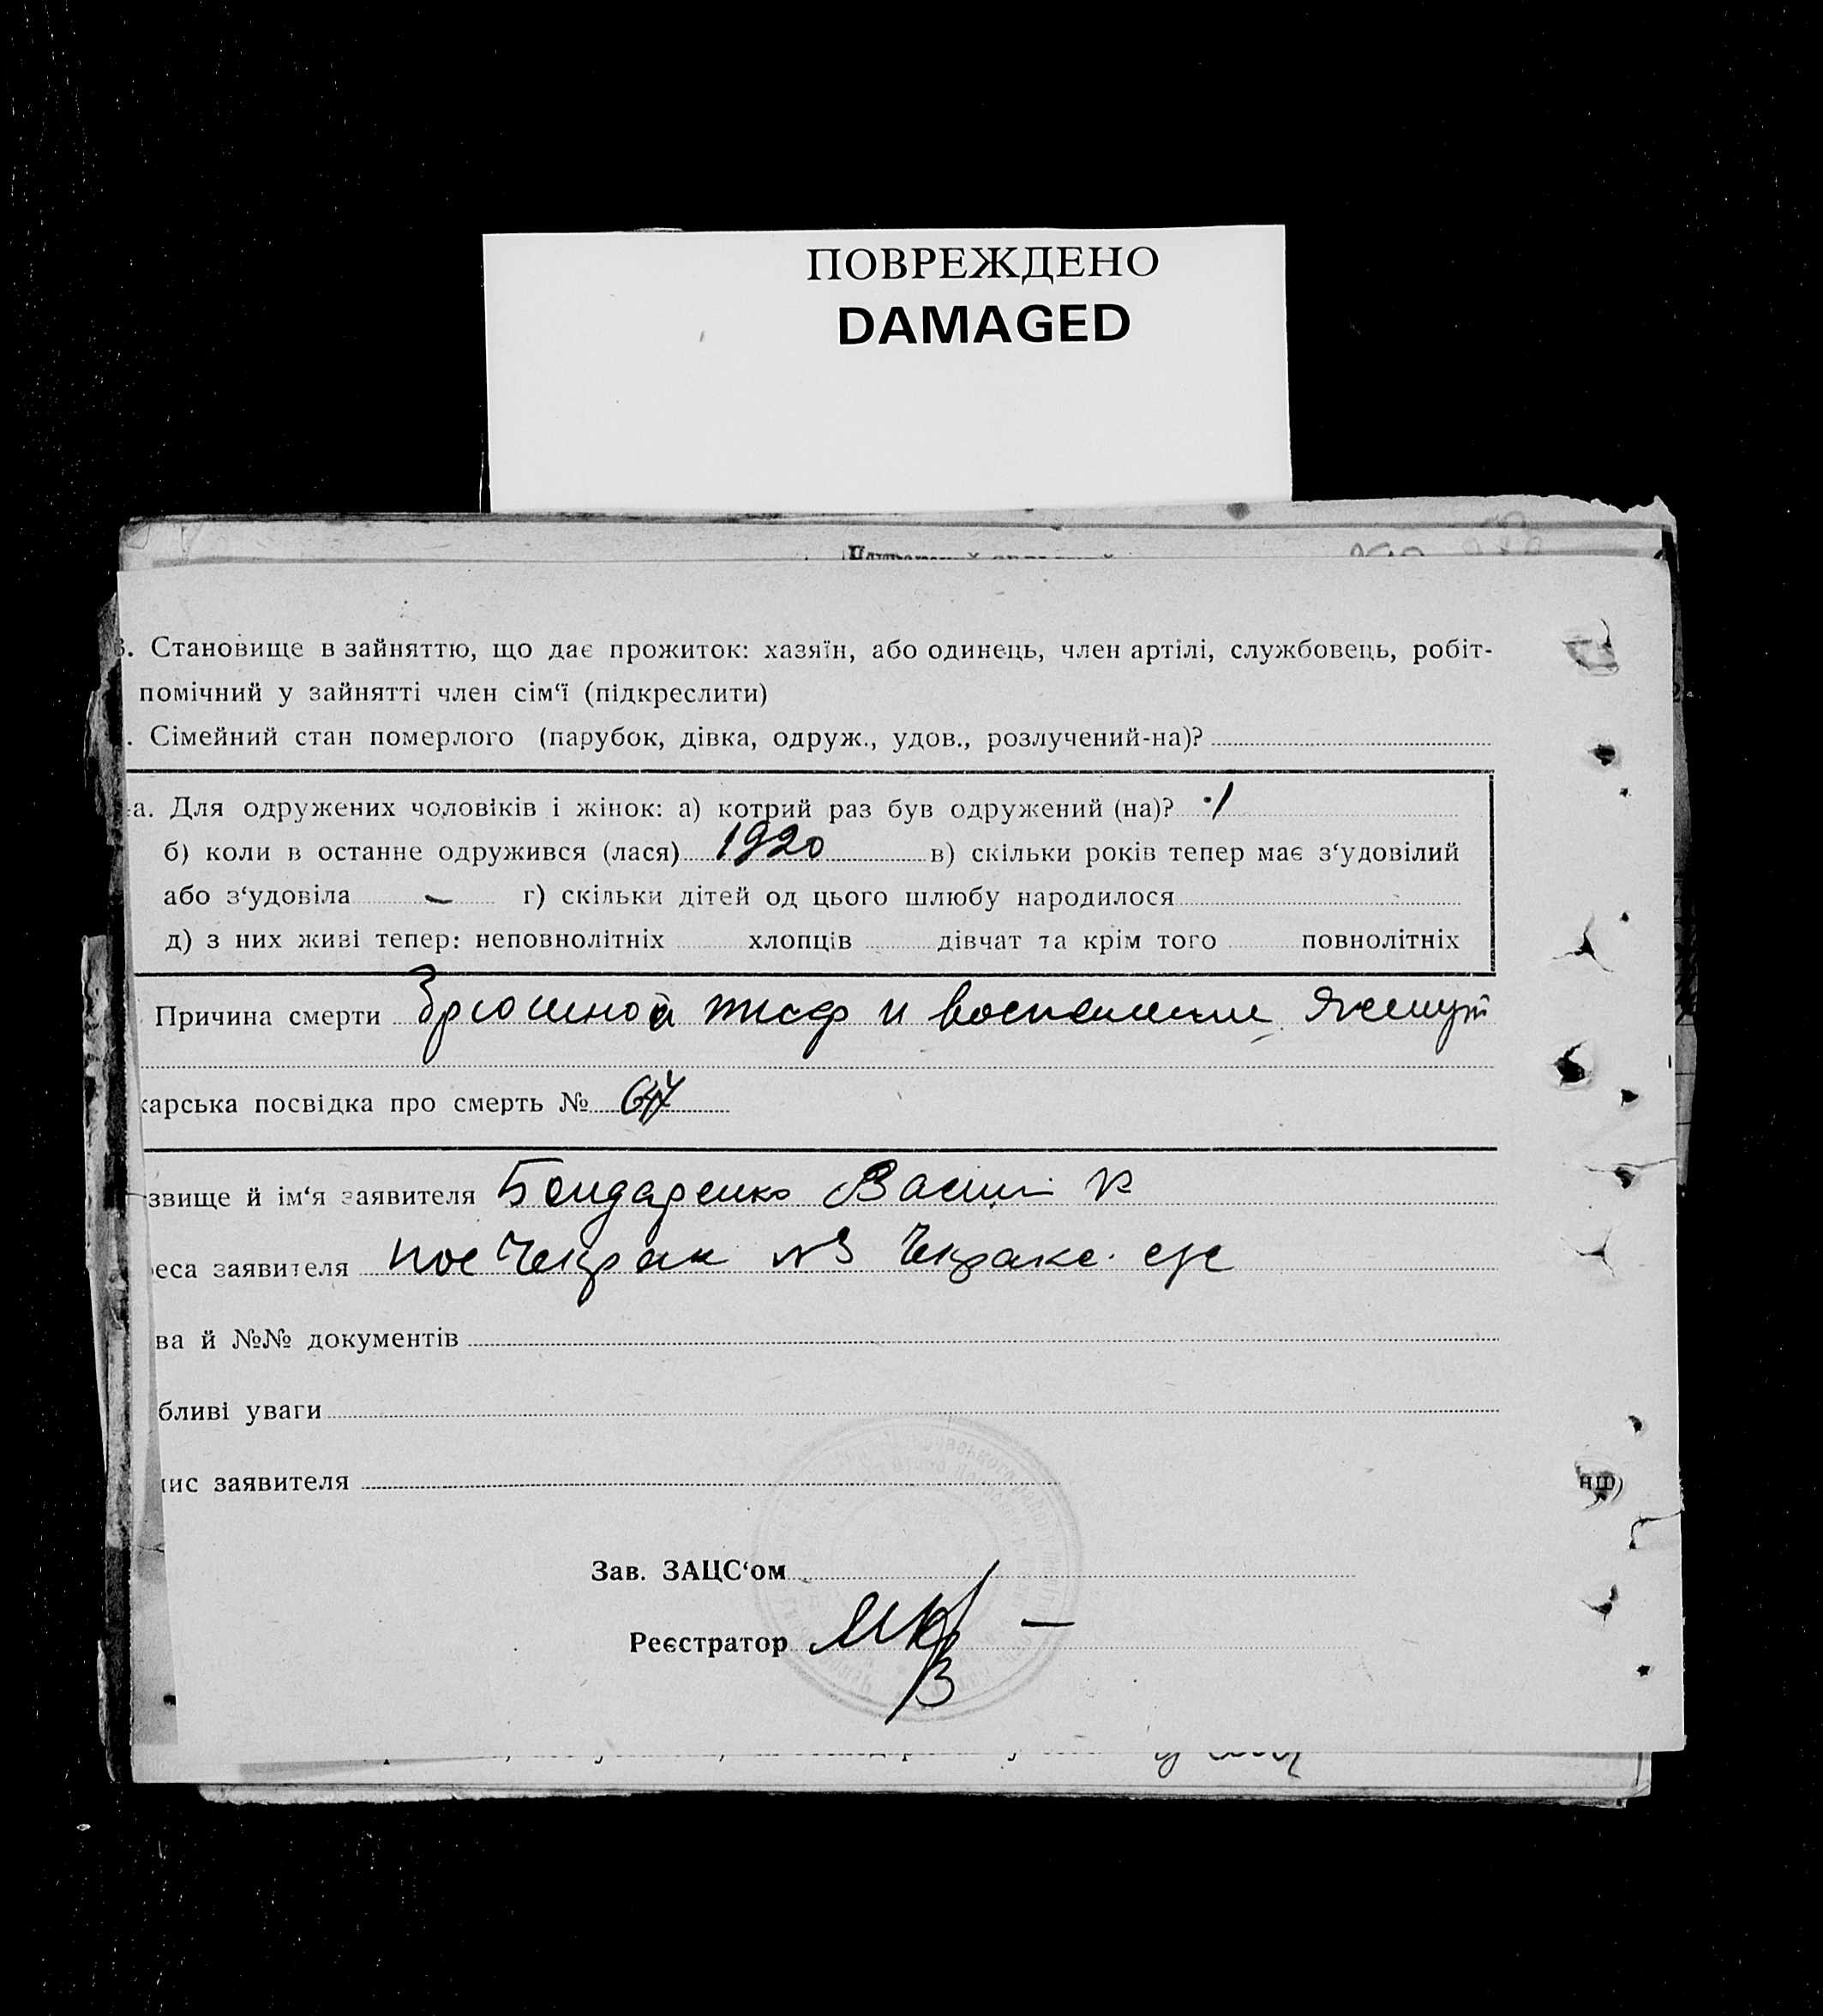 ПОВРЕЖДЕНО
DAMAGED
3. Становище в зайняттю, що дає прожиток: хазяїн, або одинець, член артілі, службовець, робіт-
помічний у зайнятті член сім‘ї (підкреслити)
. Сімейний стан померлого (парубок, дівка, одруж., удов., розлучений-на)?
а. Для одружених чоловіків і жінок: а) котрий раз був одружений (на)? 1
б) коли в останне одружився (лася) 1920 в) скільки років тепер має з‘удовілий
або з‘удовіла — г) скільки дітей од цього шлюбу народилося
д) з них живі тепер: неповнолітніх хлопців дівчат та крім того повнолітніх
Причина смерти Брюшной тиф и воспаление
карська посвідка про смерть № 647
звище й ім‘я заявителя Бондаренко Васил К
еса заявителя пос Чекрак №3 Чекракс.
ва й №№ документів
бливі уваги
ис заявителя
нш)
Зав. ЗАЦС‘ом
Реєстратор